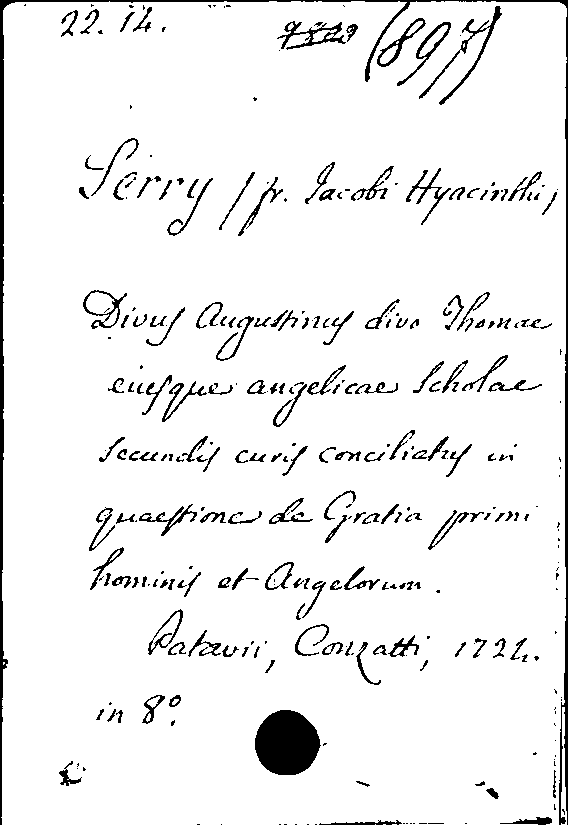 22.14. (897)
Serry / fr. Iacobi Hyacinthi,
Divus Augustinus divo Thomae
eiusque angelicae Scholae
secundis curis conciliatus in
quaestione de Gratia primi
hominis et Angelorum.
Patavii, Conzatti, 1724.
in 8°.